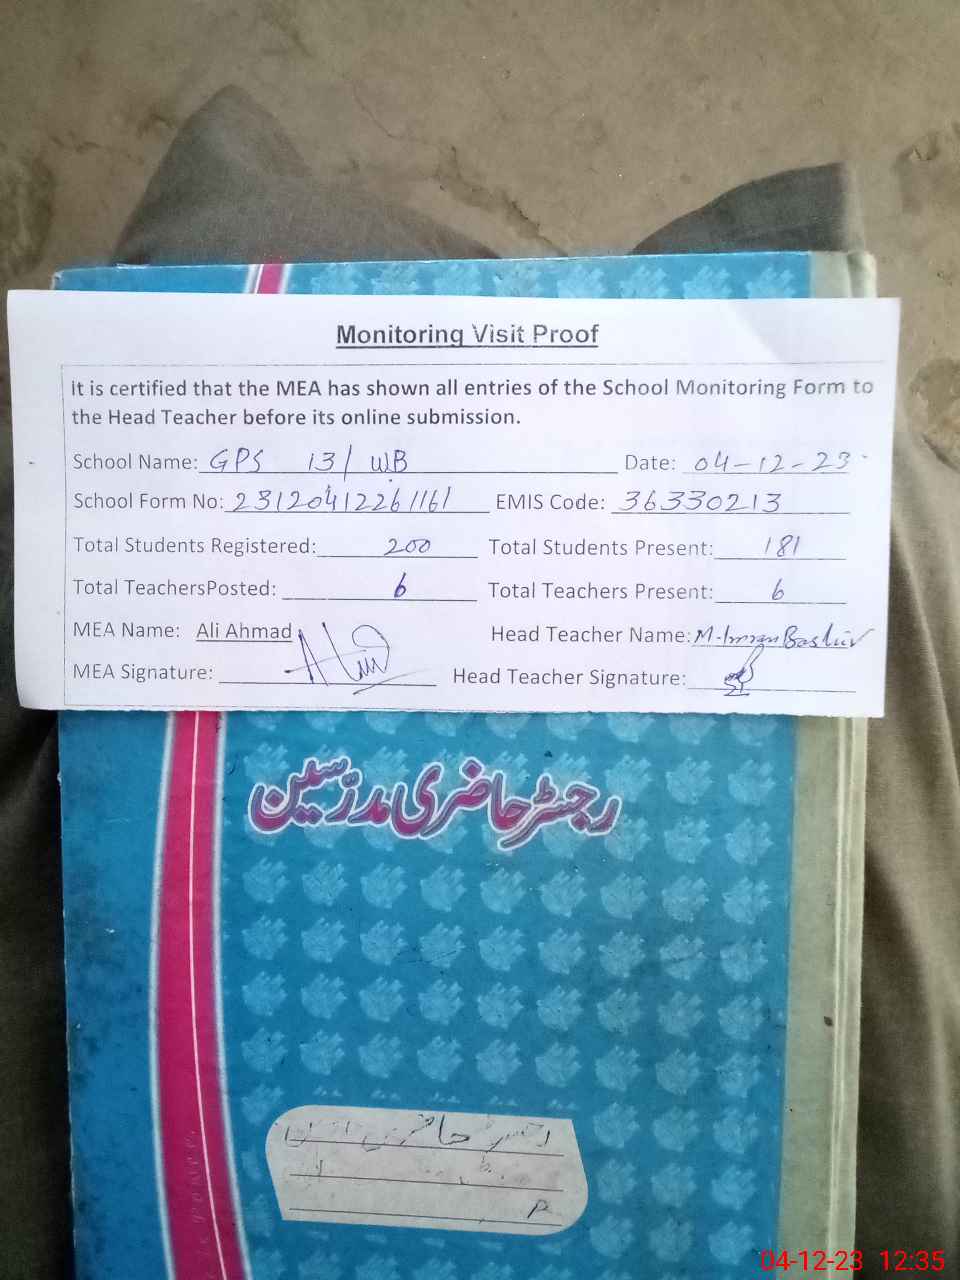 Monitoring Visit Proof
It is certified that the MEA has shown all entries of the School Monitoring Form to
the Head Teacher before its online submission.
School Name: GPS 13/WB Date: 04-12-23
School Form No: 23120412261161 EMIS Code: 36330213
Total Students Registered: 200 Total Students Present: 181
Total TeachersPosted: 6 Total Teachers Present: 6
MEA Name: Ali Ahmad Head Teacher Name: M. Imran Bashir
MEA Signature: Head Teacher Signature:
رجسٹر حاضری مدرسین
رجسٹر حاضری
04-12-23 12:35